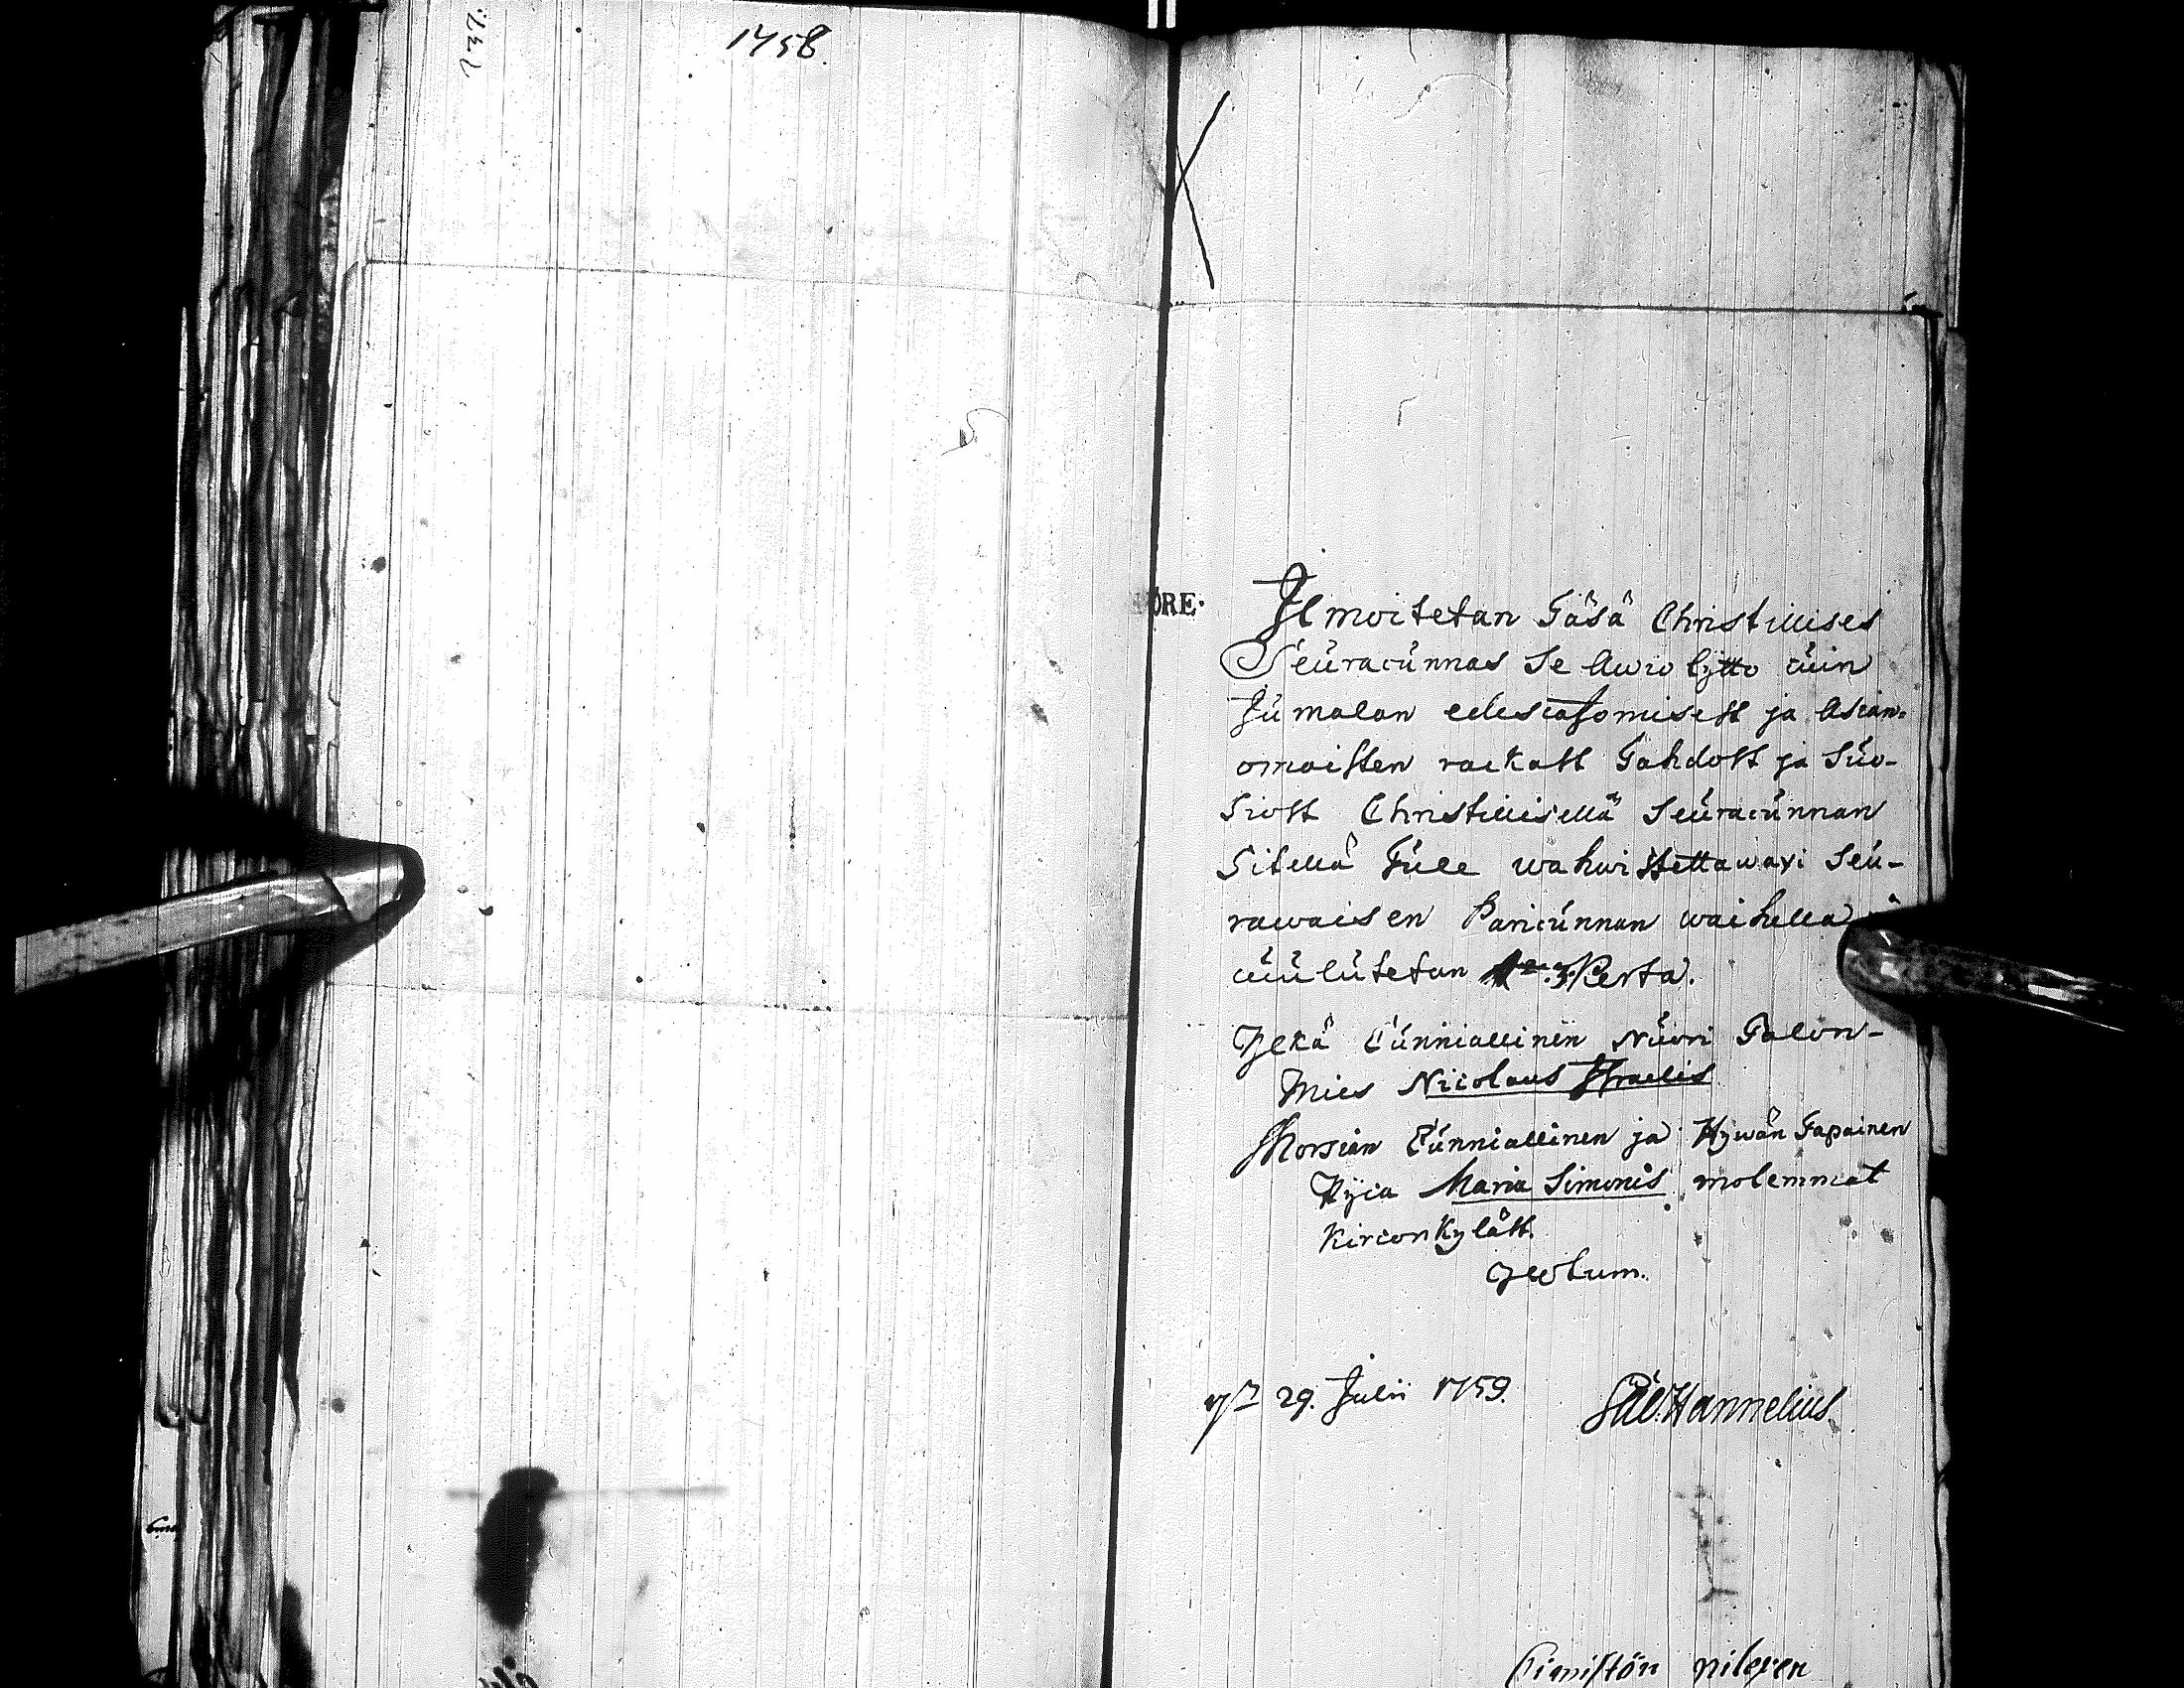 1758.
ÖRE.
Ilmoitetan Täsä Christillises
Seuracunnas se Awioljtto cuin
Jumalan edescatsomisest ja Asian-
omaisten rackast Tahdost ja Suo-
siost Christillisellä Seuracunnan
Sitellä Tule wahwistettawaxi Seu-
rawaisen Paricunnan waihella
cuulutetan 3. Kerta.
Ylkä Cunniallinen Nuori Talon-
Mies Nicolaus Israelis
Morsian Cunniallinen ja Hywän Tapainen
Pijca Maria Simonis molemmat
Kirconkyläst.
Jwotum.
29. Julii 1759. Hannelius